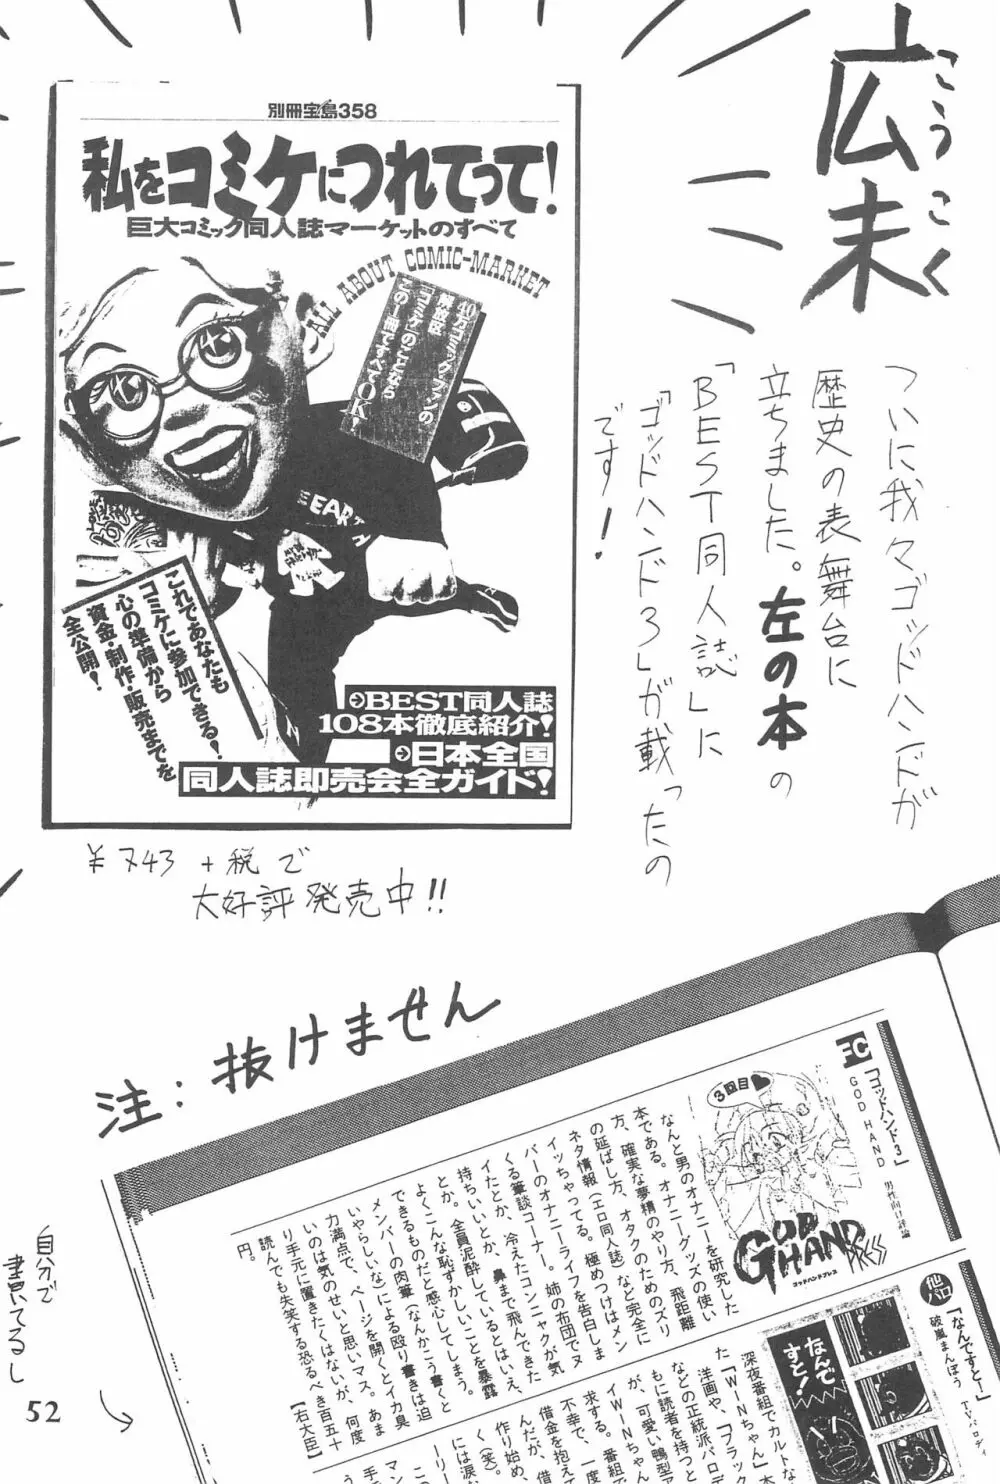 広末
こうこく
ついに我々ゴッドハンドが
歴史の表舞台に
立ちました。左の本の
「BEST同人誌」に
「ゴッドハンド3」が載ったの
です!
別冊宝島358
私をコミケにつれてって!
巨大コミック同人誌マーケットのすべて
ALL ABOUT COMIC-MARKET
40万コミックファンの
解放区
「コミケ」のことなら
この1冊ですべてOK!
EARTH
これであなたも
コミケに参加できる!
心の準備から
資金・制作・販売までを
全公開!
BEST同人誌
108本徹底紹介!
日本全国
同人誌即売会全ガイド!
¥743+税で
大好評発売中!!
注:抜けません
EC
「ゴッドハンド3」
GOD HAND
男性向け評論
3回目
GOD HAND PRESS
ゴッドハンドプレス
なんと男のオナニーを研究した
本である。オナニーグッズの使い
方、確実な夢精のやり方、飛距離
の延ばし方、オタクのためのズリ
ネタ情報(エロ同人誌)など完全に
イッちゃってる。極めつけはメン
バーのオナニーライフを告白しま
くる筆談コーナー。姉の布団でヌ
イたとか、冷えたコンニャクが気
持ちいいとか、鼻まで飛んできた
とか。全員泥酔しているとはいえ、
よくこんな恥ずかしいことを暴露
できるものだと感心してしまう。
メンバーの肉筆(なんかこう書くと
いやらしいな)による殴り書きは迫
力満点で、ページを開くとイカ臭
いのは気のせいと思いマス。あま
り手元に置きたくはないが、何度
読んでも失笑する恐るべき百五十
円。【右大臣】
他パロ
「なんですと!」
破嵐まんぼう
TVパロディ
なんで
すと!
深夜番組でカルトな
た「WINちゃん」本
洋画や、「ブラック
などの正統派パロデ
もに読者を持つと
が、可愛い鴨型テ
イWINちゃん
求する。番組で
不幸で、一度
んだが、借
借金を抱えて
作り始め、
く(笑)。
には涙な
ーリー
マン
手
自分で
書いてるし
52